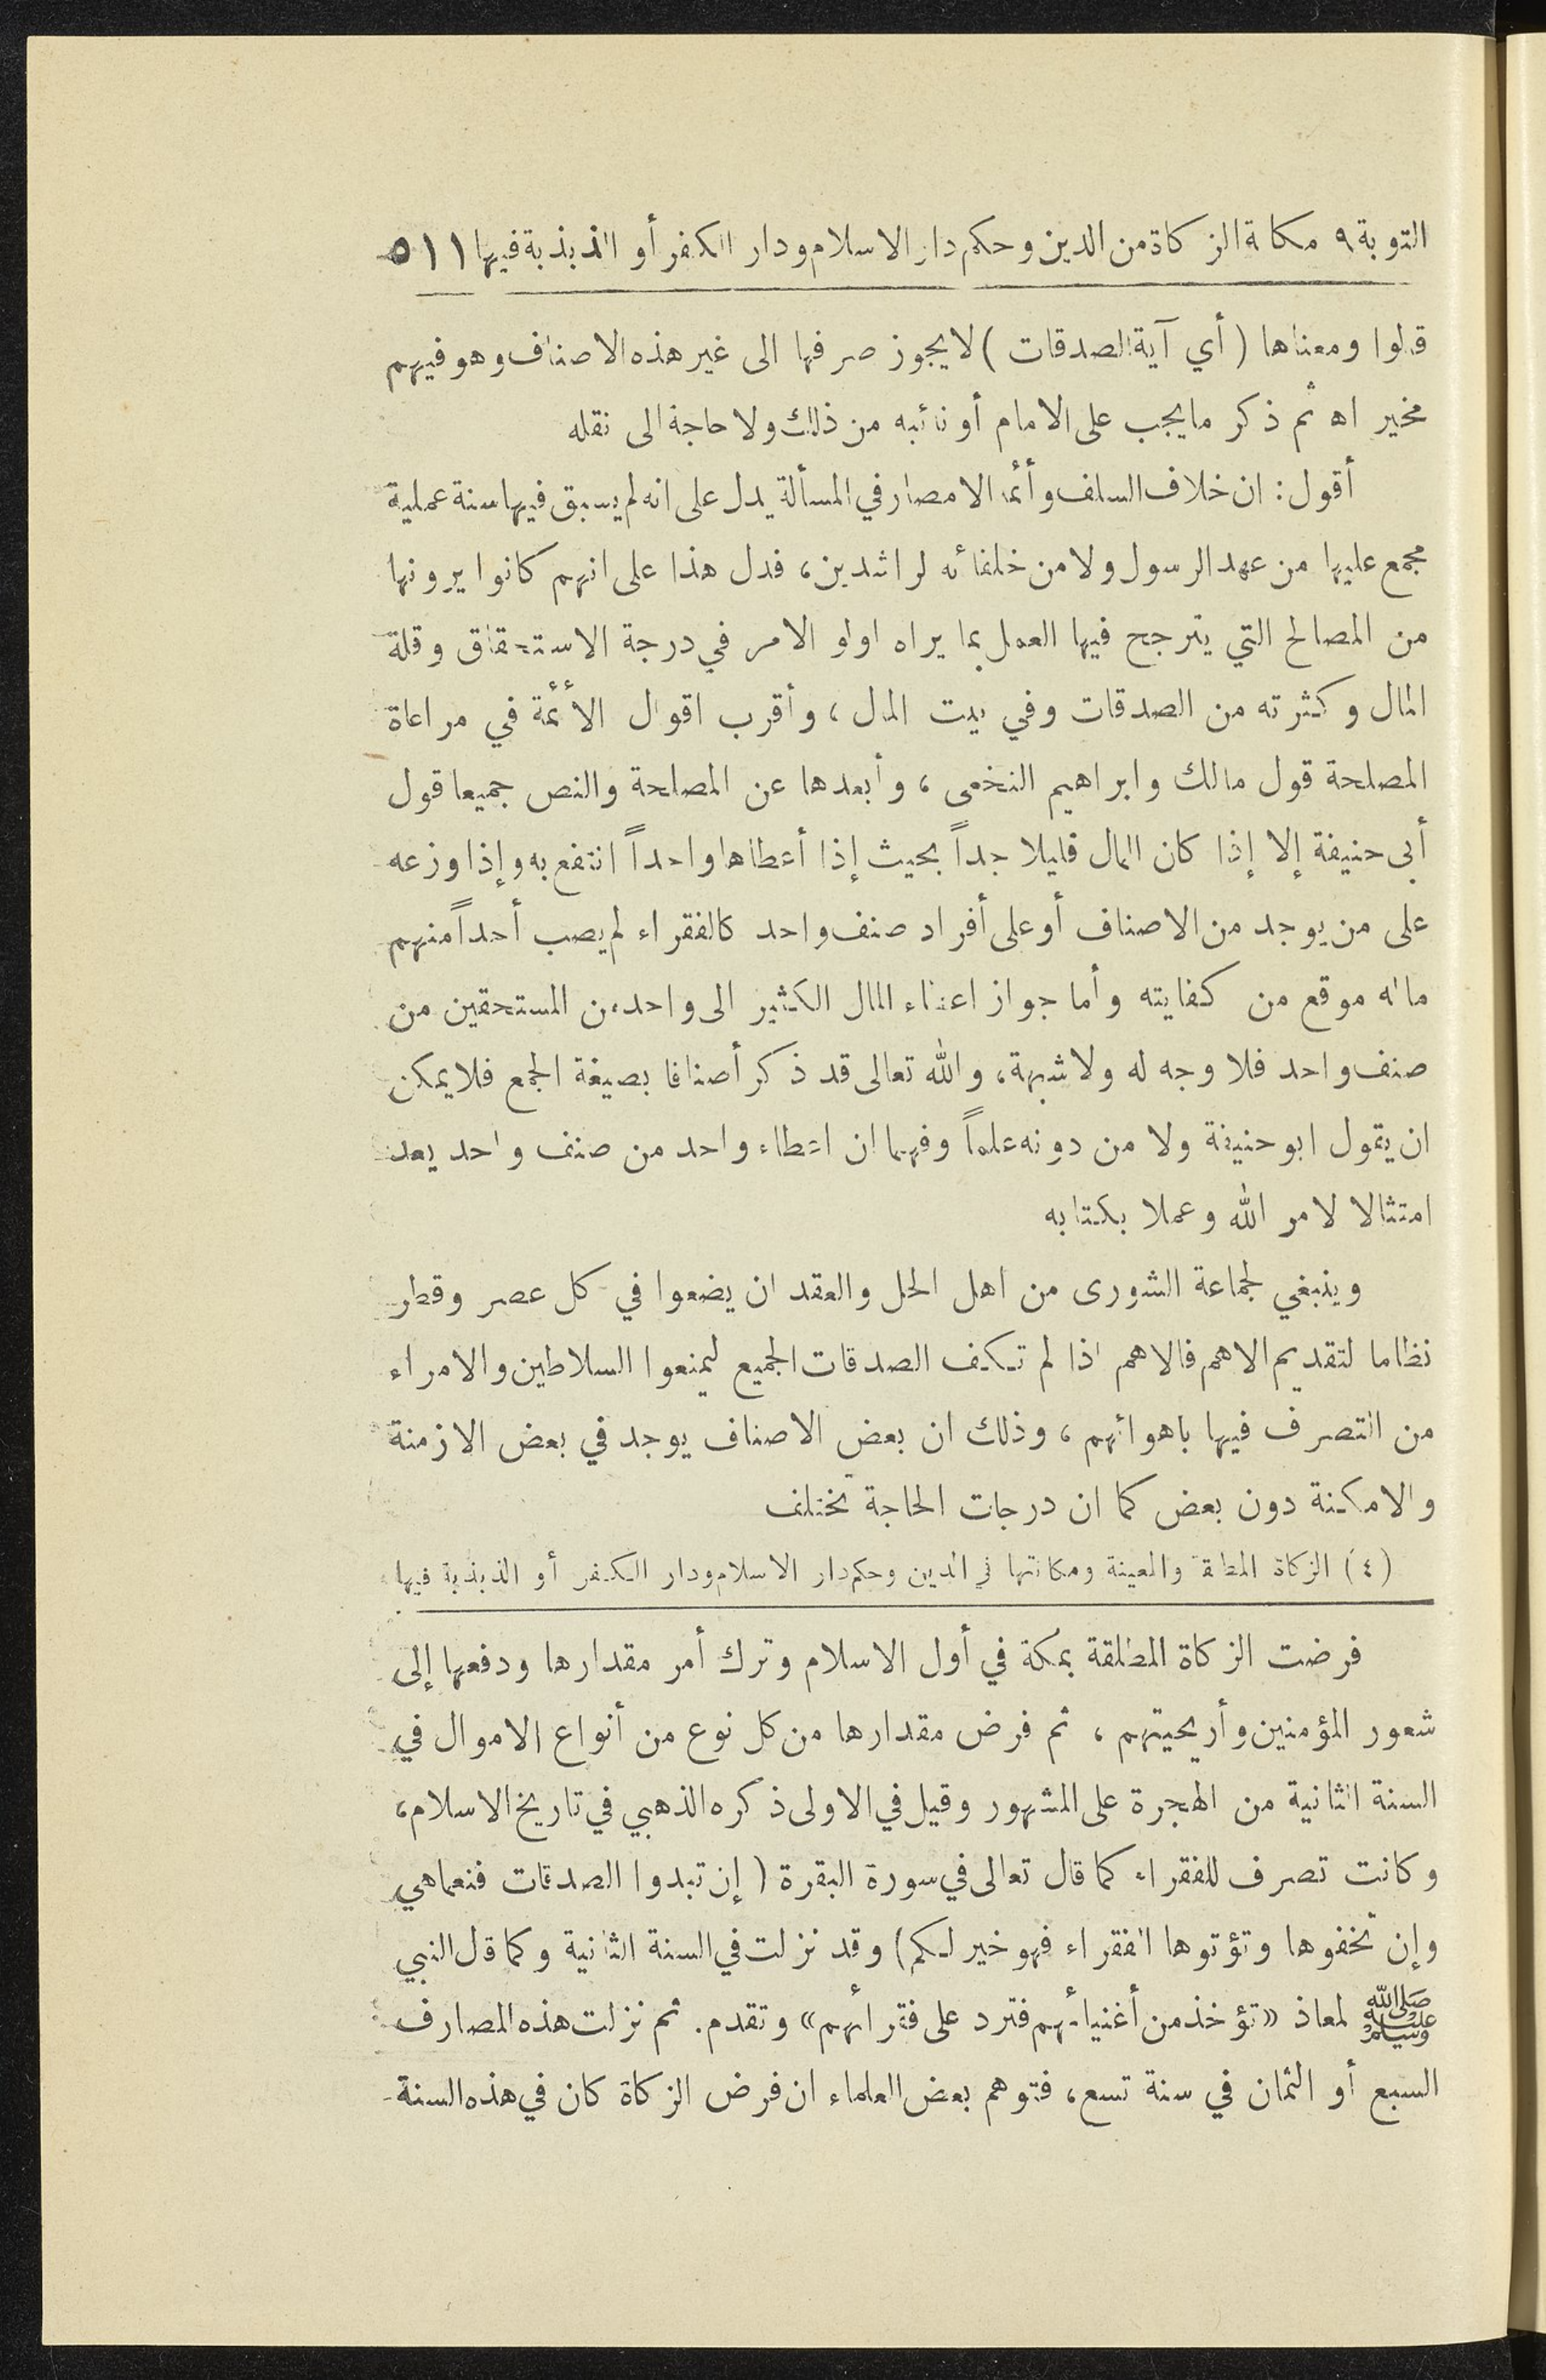 التوبة ٩ مكانة الزكاة من الدين وحكم دار الاسلام ودار الكفر أو الذبذبة فيها ٥١١
قالوا ومعناها ( أي آية الصدقات ) لا يجوز صرفها الى غير هذه الاصناف وهو فيهم
مخير اه ثم ذكر ما يجب على الامام أو نائبه من ذلك ولا حاجة الى نقله
أقول : ان خلاف السلف وأئمة الامصار في المسألة يدل على انه لم يسبق فيها سنة عملية
مجمع عليها من عهد الرسول ولا من خلفائه الراشدين ، فدل هذا على انهم كانوا يرونها
من المصالح التي يترجح فيها العمل بما يراه اولو الامر في درجة الاستحقاق وقلة
المال وكثرته من الصدقات وفي بيت المال ، وأقرب اقوال الأئمة في مراعاة
المصلحة قول مالك وابراهيم النخعي ، وأبعدها عن المصلحة والنص جميعا قول
أبي حنيفة إلا إذا كان المال قليلا جداً بحيث إذا أعطاها واحداً انتفع به وإذا وزعه
على من يوجد من الاصناف أو على أفراد صنف واحد كالفقراء لم يصب أحداً منهم
ماله موقع من كفايته وأما جواز اعطاء المال الكثير الى واحد من المستحقين من
صنف واحد فلا وجه له ولا شبهة ، والله تعالى قد ذكر أصنافا بصيغة الجمع فلا يمكن
ان يقول ابو حنيفة ولا من دونه علماً وفهما ان اعطاء واحد من صنف واحد يعد
امتثالا لامر الله وعملا بكتابه
وينبغي لجماعة الشورى من اهل الحل والعقد ان يضعوا في كل عصر وقطر
نظاما لتقديم الاهم فالاهم اذا لم تكف الصدقات الجميع ليمنعوا السلاطين والامراء
من التصرف فيها باهوائهم ، وذلك ان بعض الاصناف يوجد في بعض الازمنة
والامكنة دون بعض كما ان درجات الحاجة تختلف
(٤) الزكاة المطلقة والمعينة ومكانتها في الدين وحكم دار الاسلام ودار الكفر أو الذبذبة فيها
فرضت الزكاة المطلقة بمكة في أول الاسلام وترك أمر مقدارها ودفعها إلى
شعور المؤمنين وأريحيتهم ، ثم فرض مقدارها من كل نوع من أنواع الاموال في
السنة الثانية من الهجرة على المشهور وقيل في الاولى ذكره الذهبي في تاريخ الاسلام ،
وكانت تصرف للفقراء كما قال تعالى في سورة البقرة ( إن تبدوا الصدقات فنعما هي
وإن تخفوها وتؤتوها الفقراء فهو خير لكم ) وقد نزلت في السنة الثانية وكما قال النبي
ﷺ لمعاذ « تؤخذ من أغنيائهم فترد على فقرائهم » وتقدم . ثم نزلت هذه المصارف
السبع أو الثمان في سنة تسع ، فتوهم بعض العلماء ان فرض الزكاة كان في هذه السنة